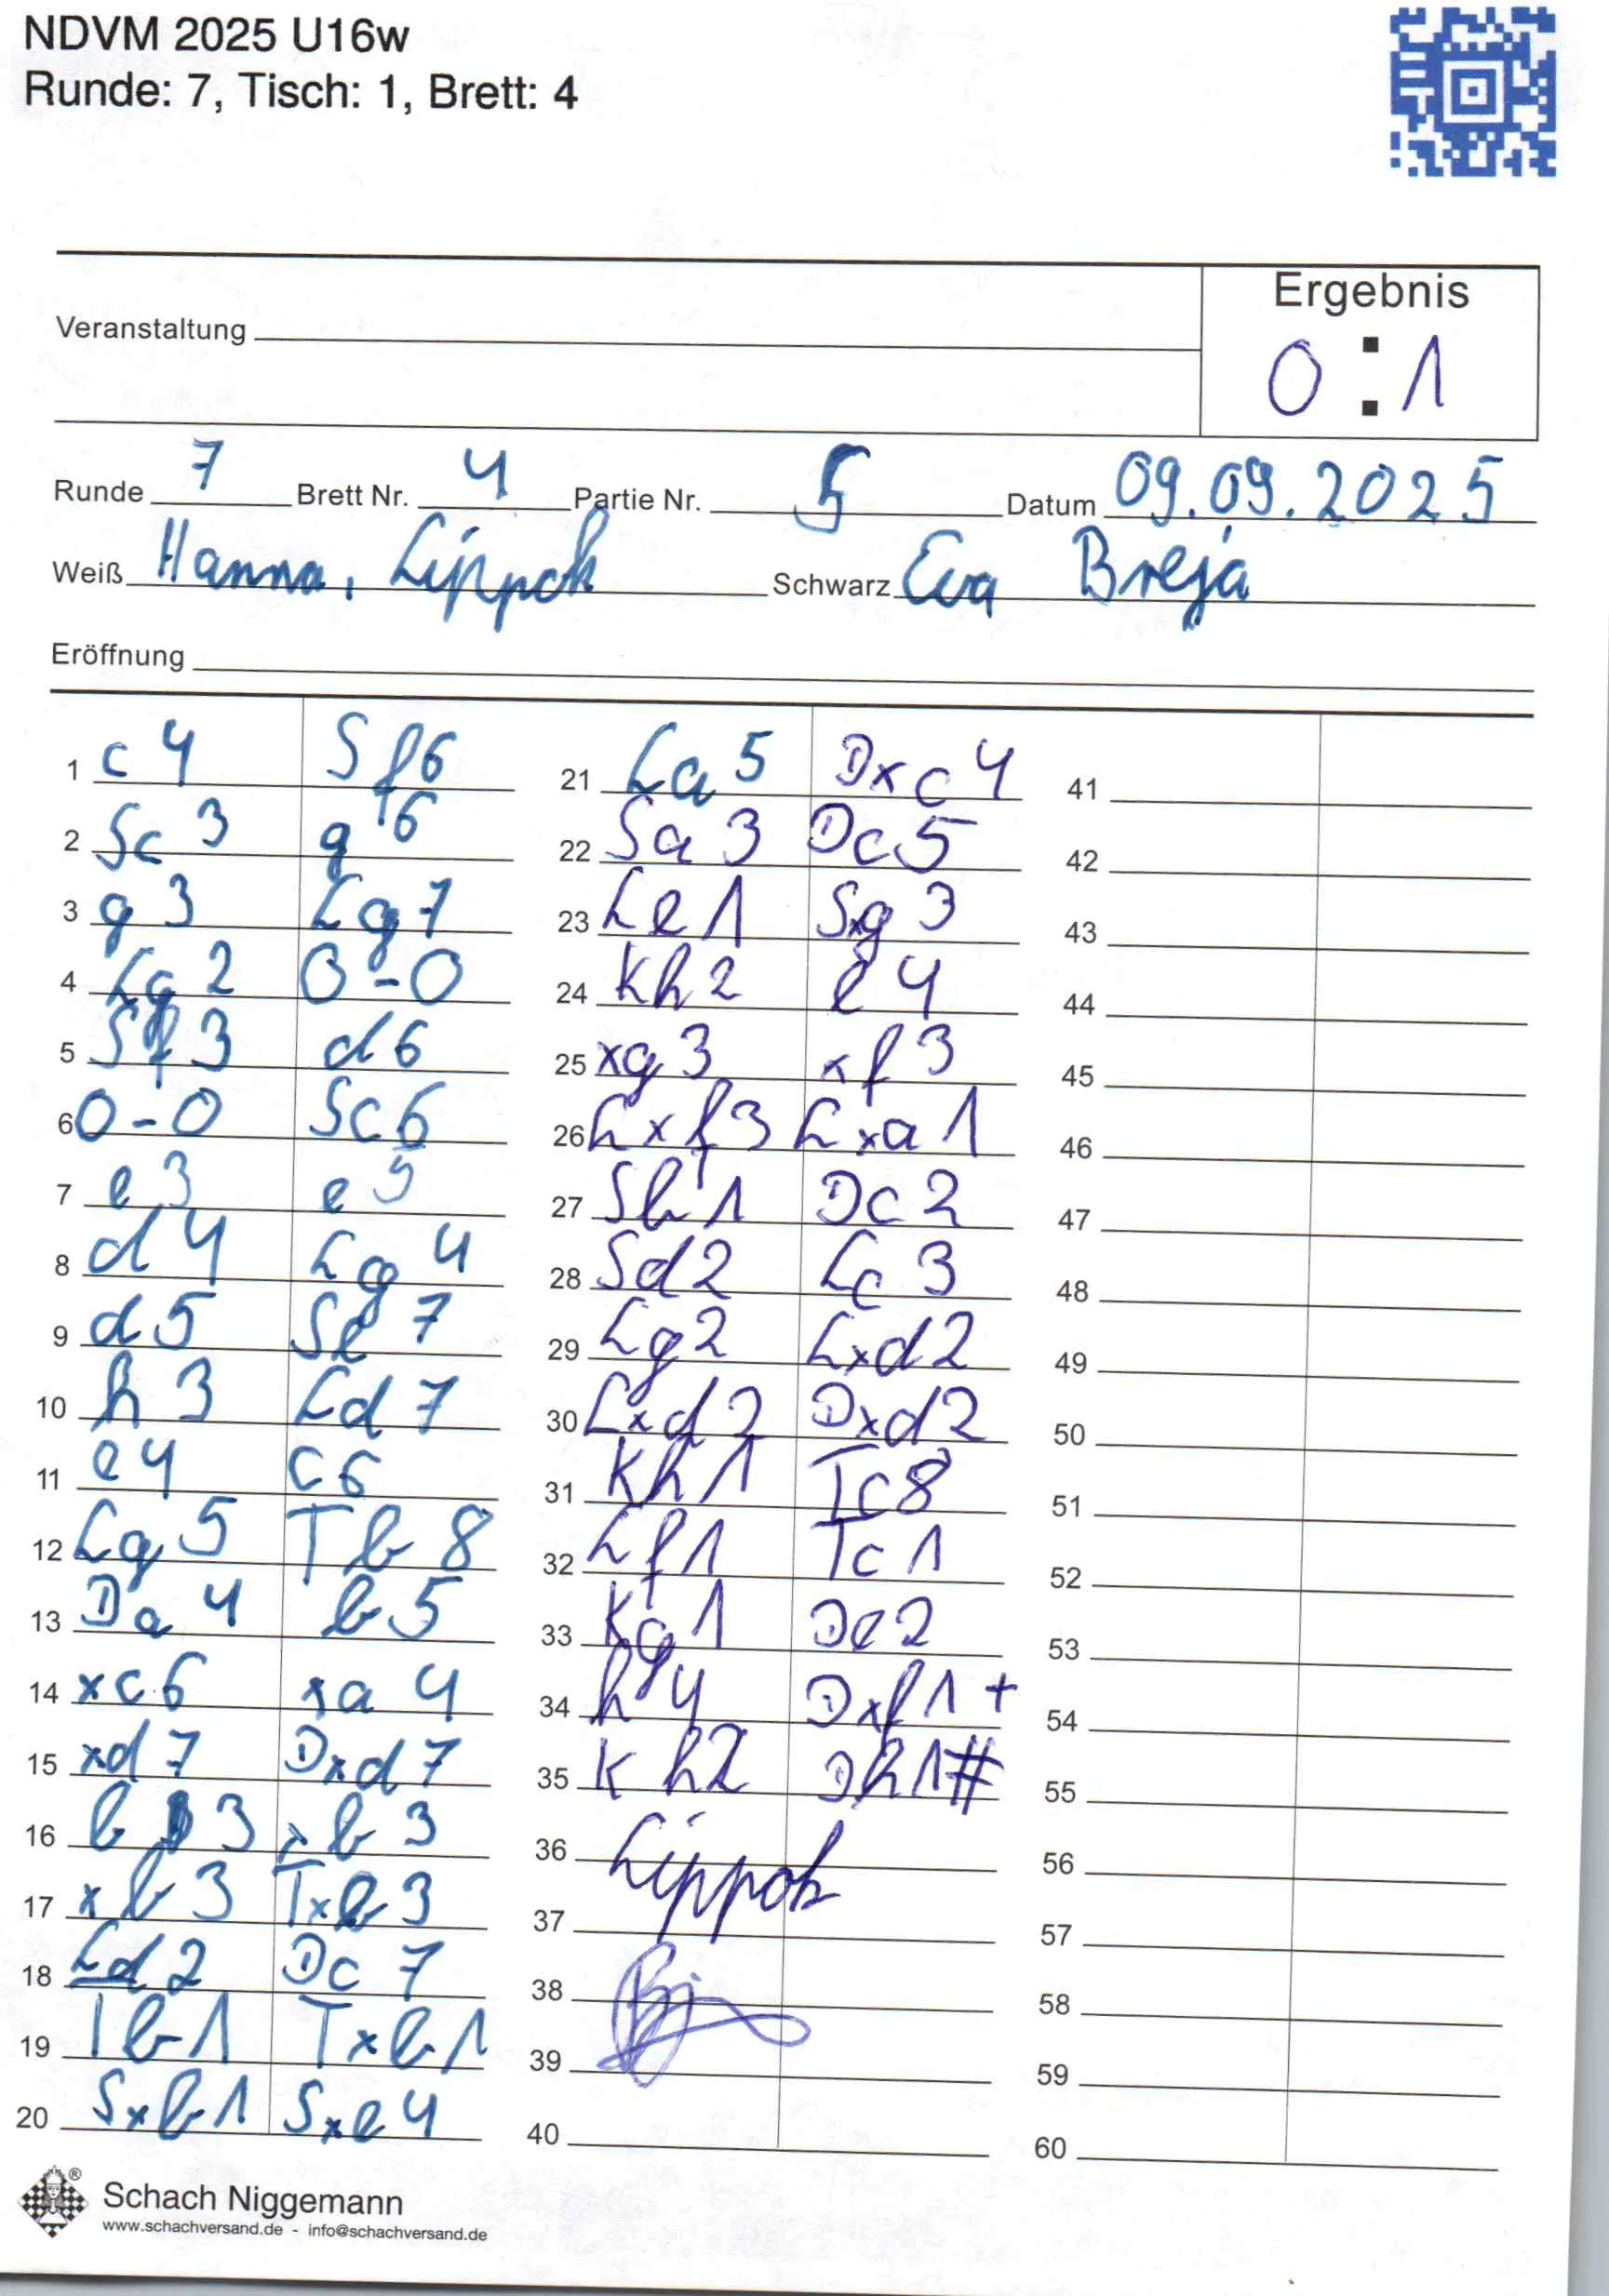 NDVM 2025 U16w
Runde: 7, Tisch: 1, Brett: 4
Ergebnis
Veranstaltung
0 : 1
Runde 7 Brett Nr. 4 Partie Nr. 5 Datum 09.09.2025
Weiß Hanna, Lippok Schwarz Eva Breja
Eröffnung
1 c4 Sf6
2 Sc3 g6
3 g3 Lg7
4 Lg2 0-0
5 Sf3 d6
6 0-0 Sc6
7 e3 e5
8 d4 Lg4
9 d5 Se7
10 h3 Ld7
11 e4 c6
12 Lg5 Tb8
13 Da4 b5
14 xc6 xa4
15 xd7 Dxd7
16 b3 xb3
17 xb3 Txb3
18 Ld2 Dc7
19 Tb1 Txb1
20 Sxb1 Sxe4
21 La5 Dxc4
22 Sa3 Dc5
23 Le1 Sxg3
24 Kh2 e4
25 xg3 xf3
26 Lxf3 Lxa1
27 Sb1 Dc2
28 Sd2 Lc3
29 Lg2 Lxd2
30 Lxd2 Dxd2
31 Kh1 Tc8
32 Lf1 Tc1
33 Kg1 De2
34 h4 Dxf1+
35 Kh2 Dh1#
36 Lippok
37
38
39
40
41
42
43
44
45
46
47
48
49
50
51
52
53
54
55
56
57
58
59
60
® Schach Niggemann
www.schachversand.de - info@schachversand.de